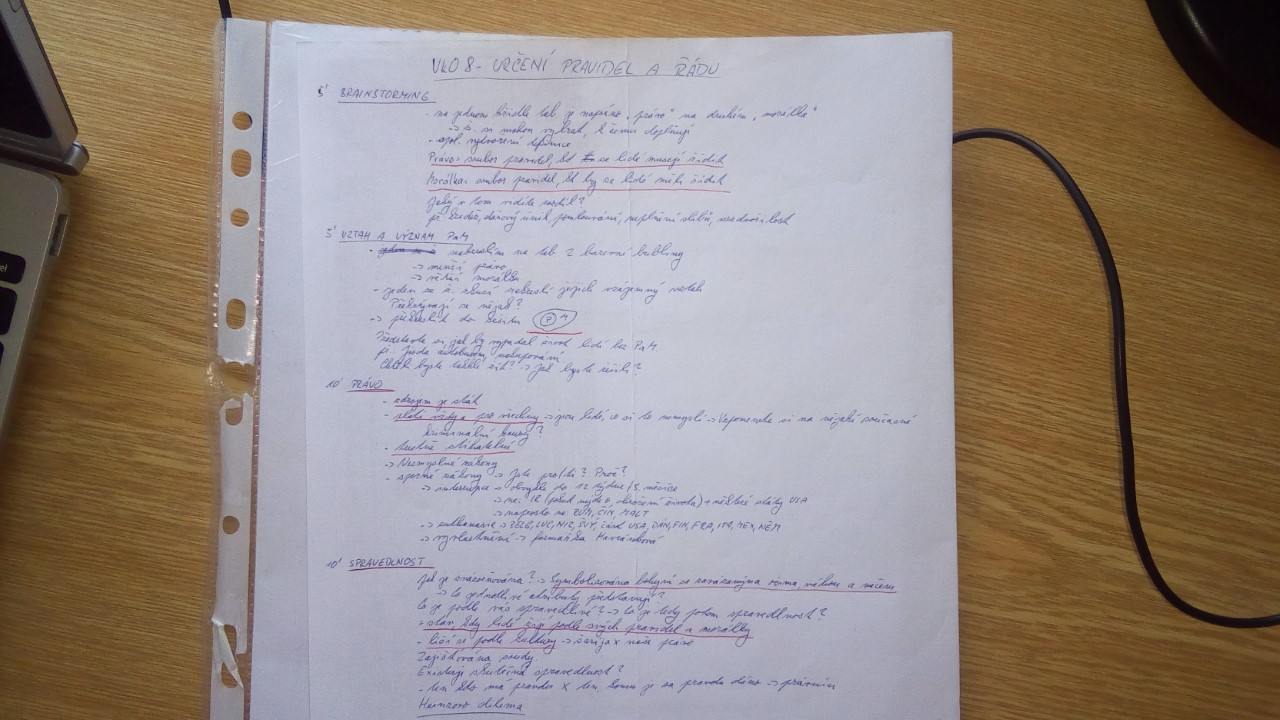 VkO 8 - URČENÍ PRAVIDEL A ŘÁDU
5' BRAINSTORMING
- na jednom křídle tab. je napsáno "právo" na druhém "morálka"
-> ž. si mohou vybrat, k čemu doplňují
- spol. vytvoření definice
Právo = soubor pravidel, kt. se lidé musejí řídit
Morálka = soubor pravidel, kt. by se lidé měli řídit
Jaký v tom vidíte rozdíl?
př. krádež, daňový únik, pomlouvání, neplnění slibů, nezdvořilost
5' VZTAH A VÝZNAM PaM
- nakreslím na tab. 2 barevné bubliny
-> menší právo
-> větší morálka
- jeden ze ž. zkusí nakreslit jejich vzájemný vztah
Překrývají se nějak?
-> překreslit do sešitu P M
Představte si, jak by vypadal život lidí bez PaM
př. jízda autobusem, nakupování
Chtěli byste takhle žít? -> Jak byste řešili?
10' PRÁVO
- zdrojem je stát
- platí vždy a pro všechny -> jsou lidé, co si to nemyslí -> Vzpomenete si na nějaké současné
kriminální kauzy?
- trestně stíhatelné
-> Nesmyslné zákony
- sporné zákony -> Jste pro/proti? Proč?
-> interrupce -> obvykle do 12. týdne/3. měsíce
-> ne: IR (pokud nejde o ohrožení života) + některé státy USA
-> naprosto ne: ČÍN, MALT
-> euthanasie -> BELG, LUC, NIZ, ŠVÝ, část USA, DÁN, FIN, FRA, ITA, MEX, NĚM
-> vyvlastnění -> farmářka Havránková
10' SPRAVEDLNOST
Jak je znázorňována? -> Symbolizována bohyní se zavázanýma očima, váhou a mečem
-> Co jednotlivé atributy představují?
Co je podle vás spravedlivé? -> Co je tedy potom spravedlnost?
- stav, kdy lidé žijí podle svých pravidel a morálky
- liší se podle kultury -> šarija x naše právo
Zajišťována soudy.
Existuje skutečná spravedlnost?
- ten kdo má pravdu x ten, komu je za pravdu dáno -> právníci
Heinzovo dilema